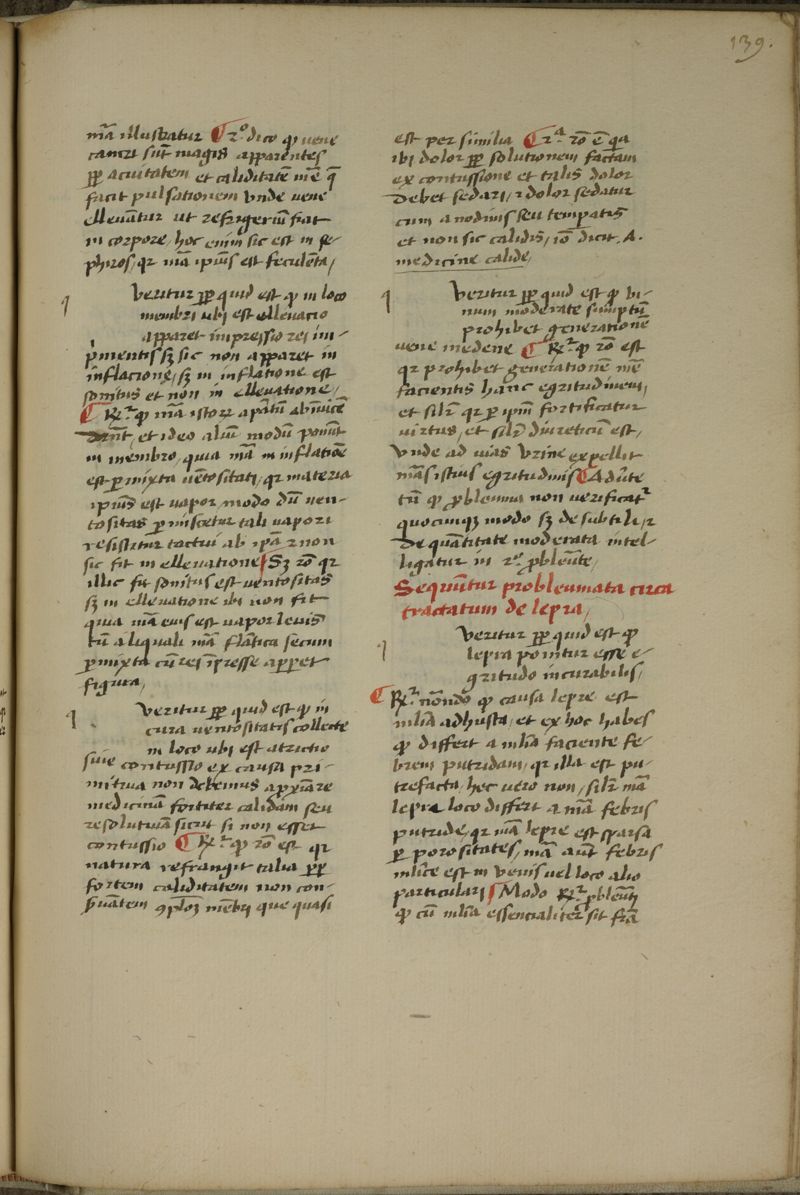 139.
mā illustratur ¶ 2º dico qꝫ uene
cancri sūt magis apparentes
ꝓꝑ acuitatem et caliditatē mē q̄
facit pulsationem Vnde uene
elleuātur ut refrigeriū fiat
in corpore, hoc enim sic est in se-
phiros, qr mā ipiꝰ est feculēta,
q
Veritur ꝓꝑ quid est ꝙ in loco
membri ubi est elleuatio
apparet impressio rei im-
pmentis sꝫ sic non apparet in
inflacione, sꝫ in inflatione est
sonitus et non in elleuatione,
¶ Rꝛ ꝙ mā istoꝝ apatū abinuicē
et ideo aliū modū ponūt
in membro, quia mā in inflatiōe
est ꝑmixta uētositati, qr materia
ipiꝰ est uapor, modo dū uen-
tositas ꝑmiscetur tali uapori
resistitur tactui ab ipā ⁊ non
sic fit in elleuatione Sꝫ rō qr
illic fit sonitus est uentositas
sꝫ in elleuatione ibi non fit
quia mā eius est uapor leuis
tū aliquali mā flātica secum
ꝑmixta cū rei īpresse apꝑet
figura,
q
Veritur ꝓꝑ quid est ꝙ in
cura uentositatis collecte
in loco ubi est atritio
siue contussio ex causa pri-
mitiua non debemus apꝓxiāre
medicinā fortiter calidam seu
resolutiuā sicut si non esset
contussio ¶ Rꝛ ꝙ rō est qr
natura refrangit talia ꝓꝑ
fortem caliditatem non con-
ẜuātem ꝯploꝫ mēbri que quasi
est per similia ¶ 2ª rō ē qa
ibi dolor ꝓꝑ solutionem factam
ex contussione et talis dolor
debet sedari, ⁊ dolor sedatur
cum anodinis seu tempatis
et non sic calidis, iō dicit .A.
medicine calide,
q
Veritur ꝓꝑ quid est ꝙ vi-
num moderate sumptū
prohibet generationē
uene medene ¶ Rꝛ ꝙ rō est
qr prohibet generationē mē
facientis hanc egritudinem,
et silr qr ꝑ ipm fortificatur
uirtus, et silr diureticū est,
Vnde ad uias Vrine expellit
mās istius egritudinis ¶ Adute
tū ꝙ ꝓbleuma non uerificatr
quocunqꝫ modo sꝫ de subtili, ⁊
de quātitate moderata intel-
ligatur in 2º ꝓbleūte,
Sequūtur probleumata circa
tractatum de lepra,
q
Veritur ꝓꝑ quid est ꝙ
lepra ponitur esse e-
gritudo incurabilis,
¶ Rꝛ nōndo ꝙ causa lepre est
mlīa adhusta, et ex hoc habes
ꝙ differt a mlīa faciente fe-
brem putridam, qr illa est pu-
trefacta, hec uero non, silr mā
lepra loco differt a mā febris
putride, qr mā lepre est sparsa
ꝑ porositates, mā aūt febris
mlīce est in venis uel loco alio
particulari Modo Rꝛ ꝓbleūti
ꝙ cū mlīa essencialiter sit fīa